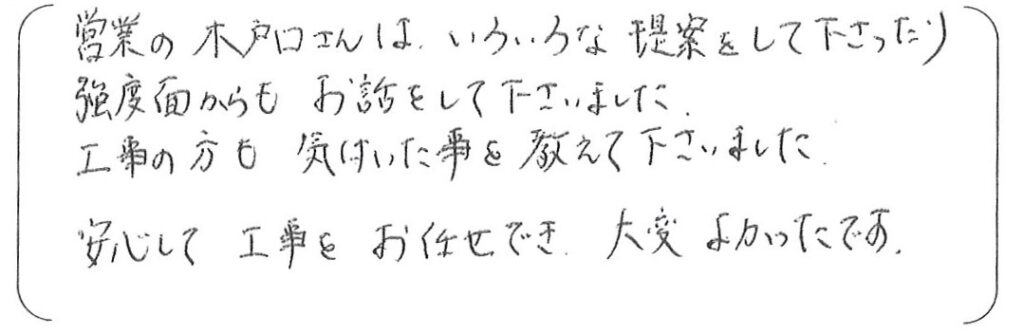 営業の木戸口さんは、いろいろな提案をして下さったり
強度面からも お話をして下さいました。
工事の方も 気付いた事を教えて下さいました。
安心して 工事を お任せでき、大変 よかったです。